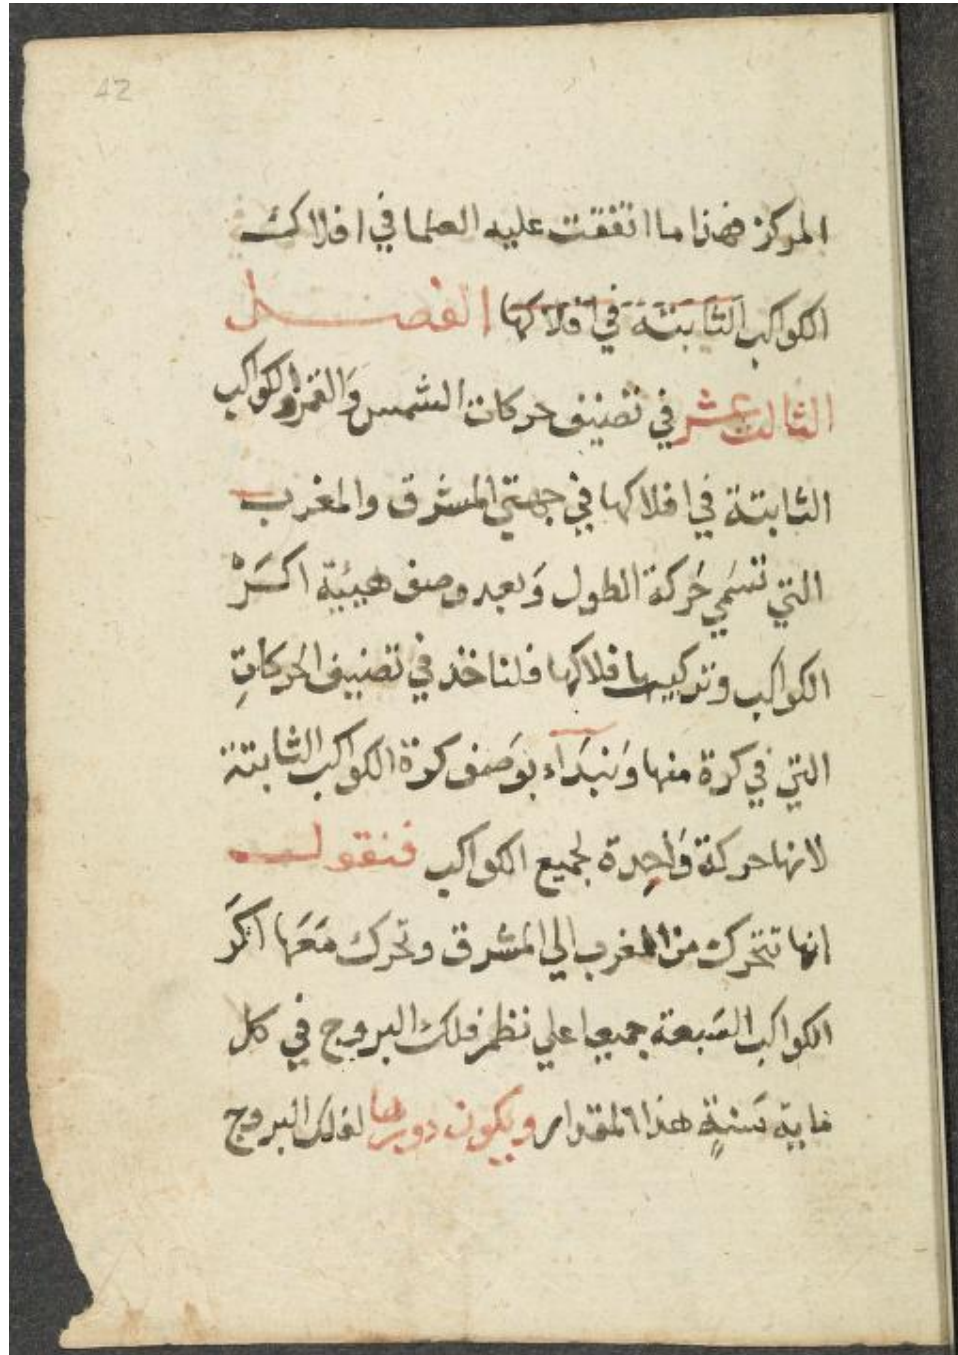 42
المركز فهذا ما اتفقت عليه العلما في افلاك
الكواكب الثابتة في افلاكها الفصل
الثالث عشر في تصنيف حركات الشمس والقمر والكواكب
الثابتة في افلاكها في جهتي المشرق والمغرب
التي تسمي حركة الطول وبعد وصف هيية اكر
الكواكب وتركيب افلاكها فلناخذ في تصنيف الحركات
التي في كرة منها ونبداء بوصف كرة الكواكب الثابتة
لانها حركة واحدة لجميع الكواكب فنقول
انها تتحرك من المغرب الي المشرق وتحرك معها اكر
الكواكب السبعة جميعا علي نظم فلك البروج في كل
ماية سنة هذا المقدار ويكون دورها لفلك البروج